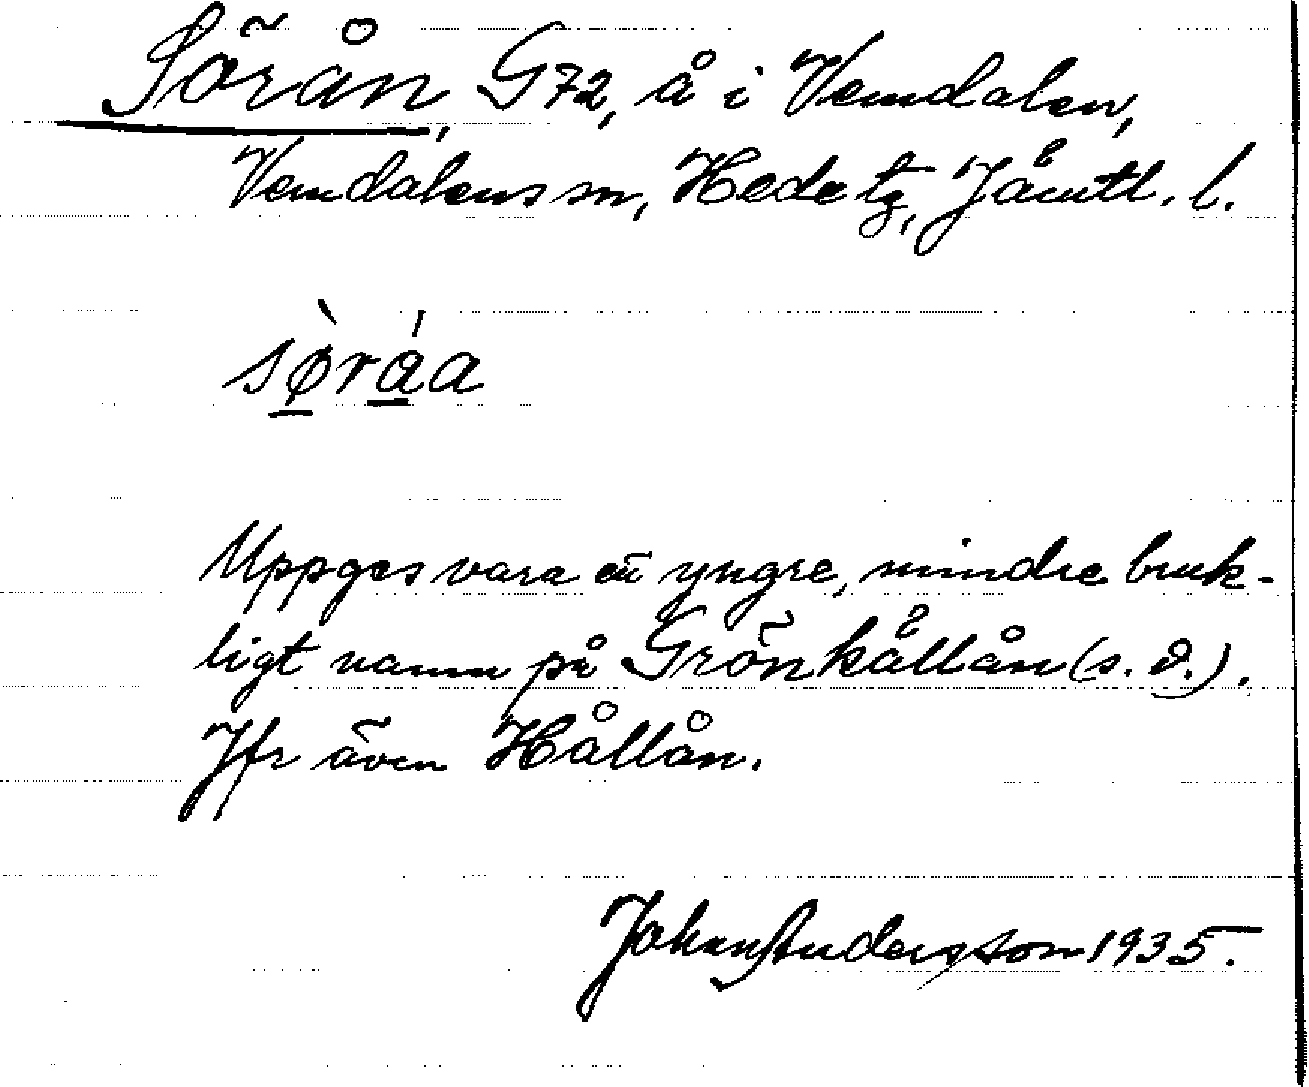 Sörån, G72, å i Vemdalen,
Vemdalens sn, Hede tg, Jämtl. l.
sø̀rá̱a
Uppges vara en yngre, mindre bruk-
ligt namn på Grönkållån (s. d.).
Jfr även Hållån.
Johan Andersson 1935.